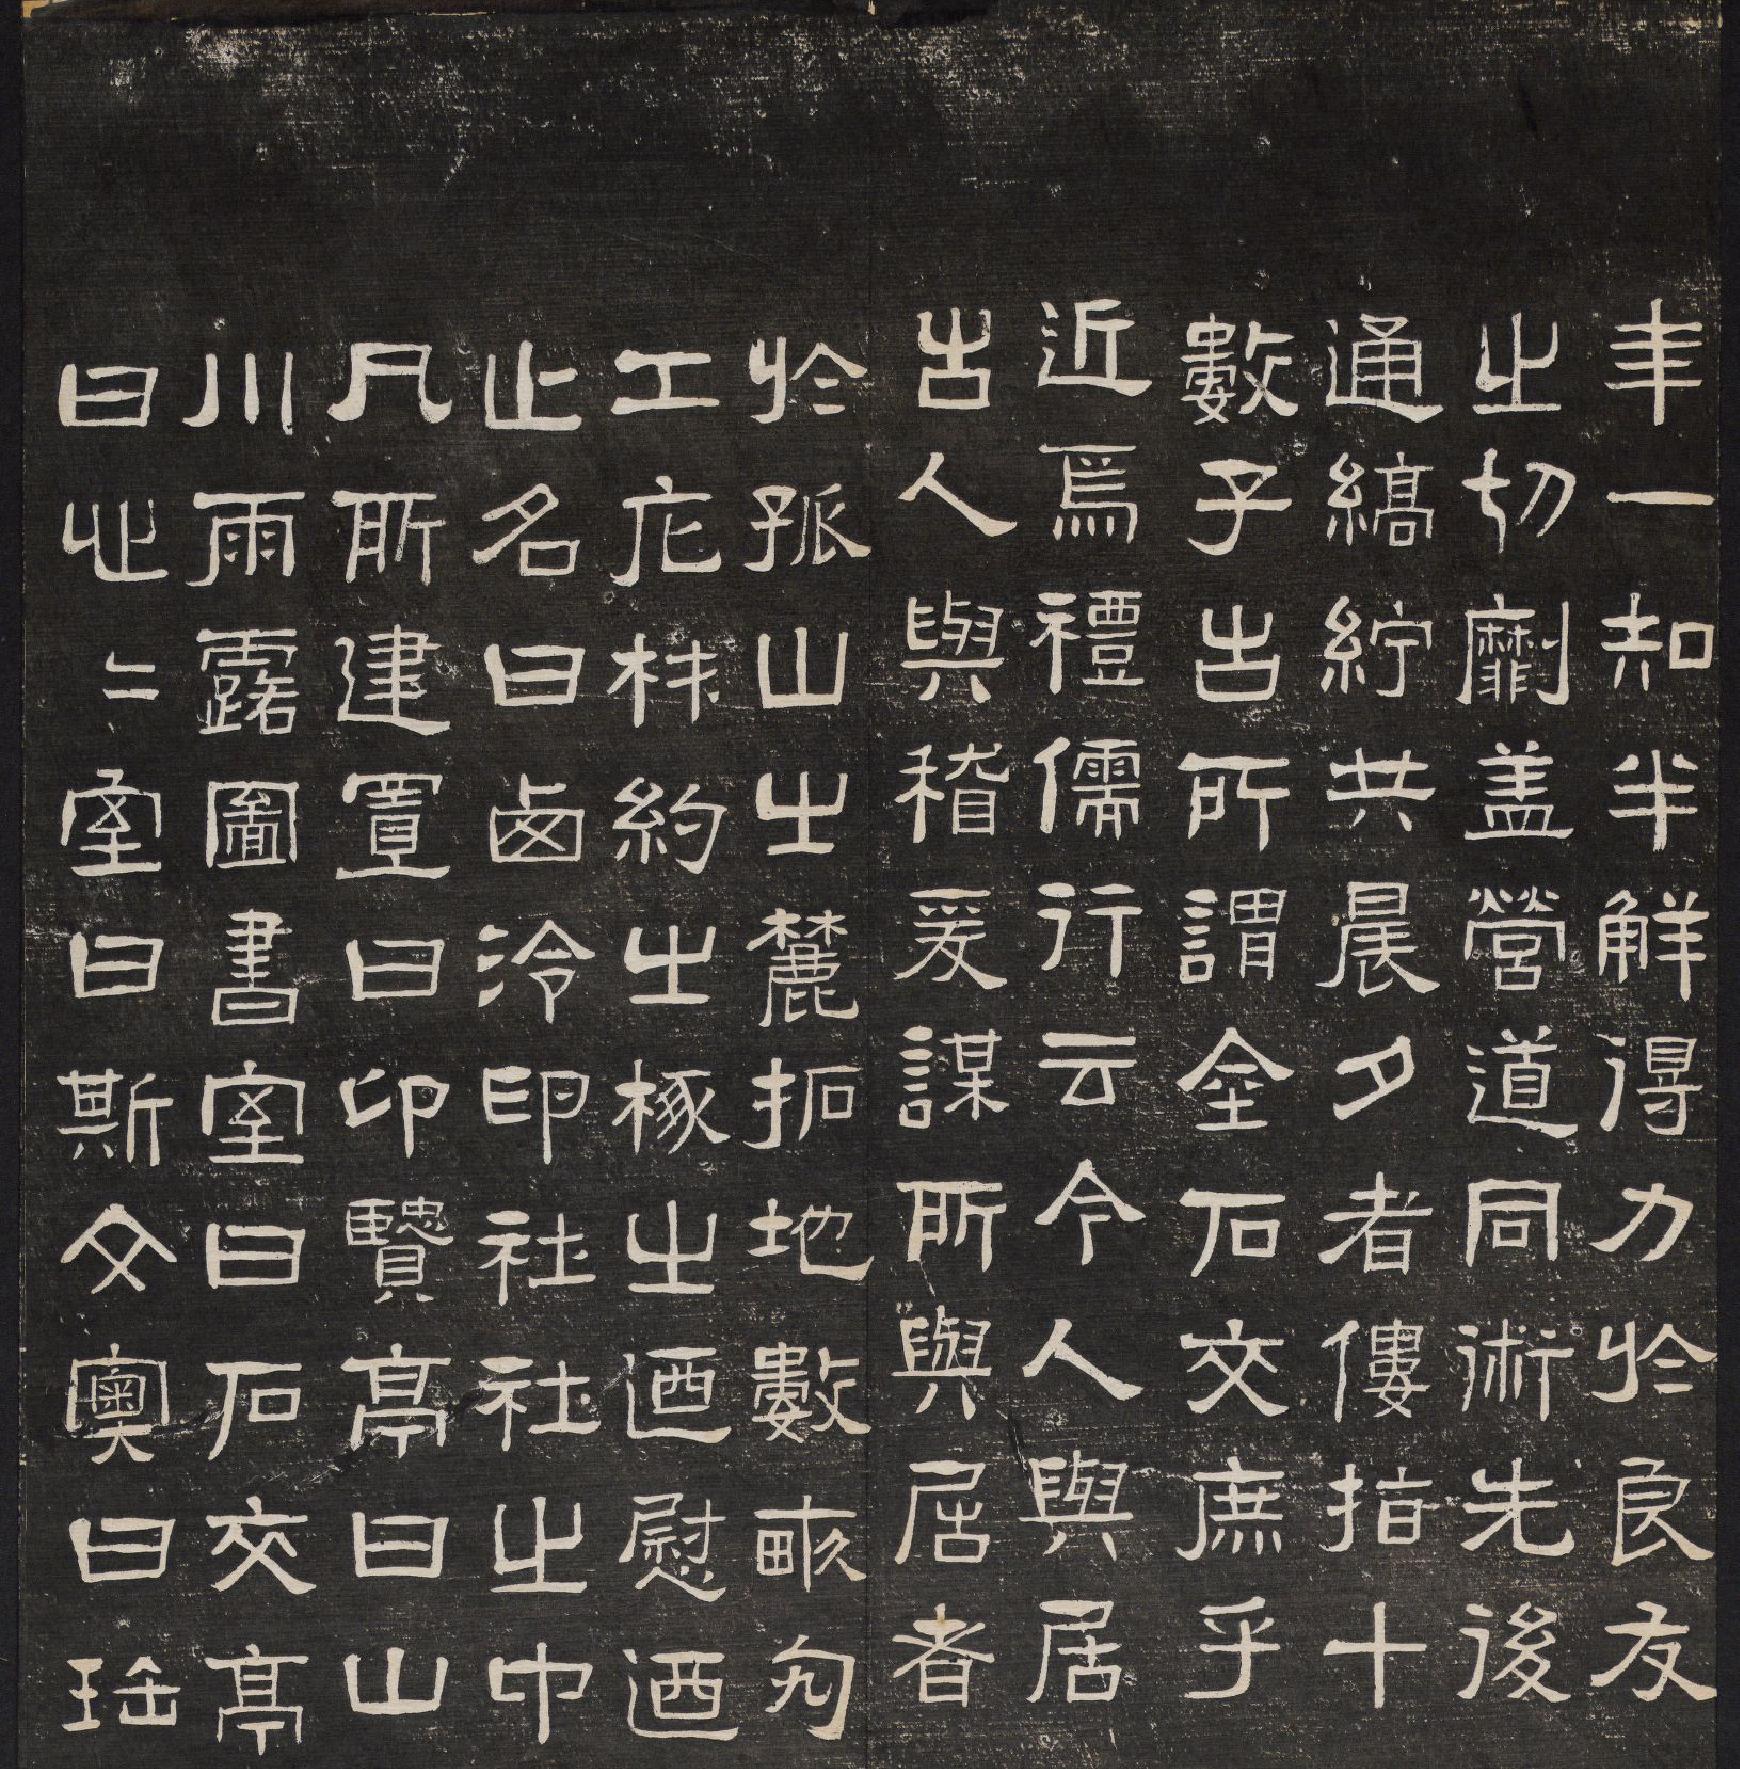 年一知半解得力於良友
之切劘盖營道同術先後
通縞紵共晨夕者僂指十
數子古所謂金石交庶乎
近焉禮儒行云今人與居
古人與稽爰謀所與居者
於孤山之麓拓地數畝勼
工庀材約之椓之迺慰迺
止名曰西泠印社社之中
凡所建置曰仰賢亭曰山
川雨露圖書室曰石交亭
曰心心室曰斯文奧曰瑶